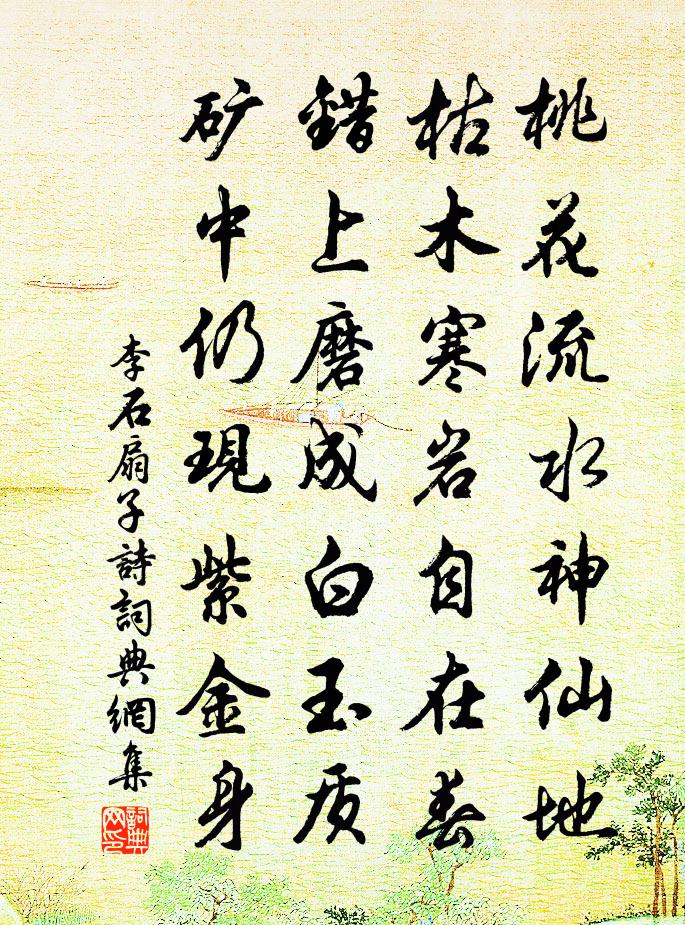 桃花流水神仙地
枯木寒岩自在春
錯上磨成白玉质
矿中仍現紫金身
李石扇子詩詞典網集
詞典
网印